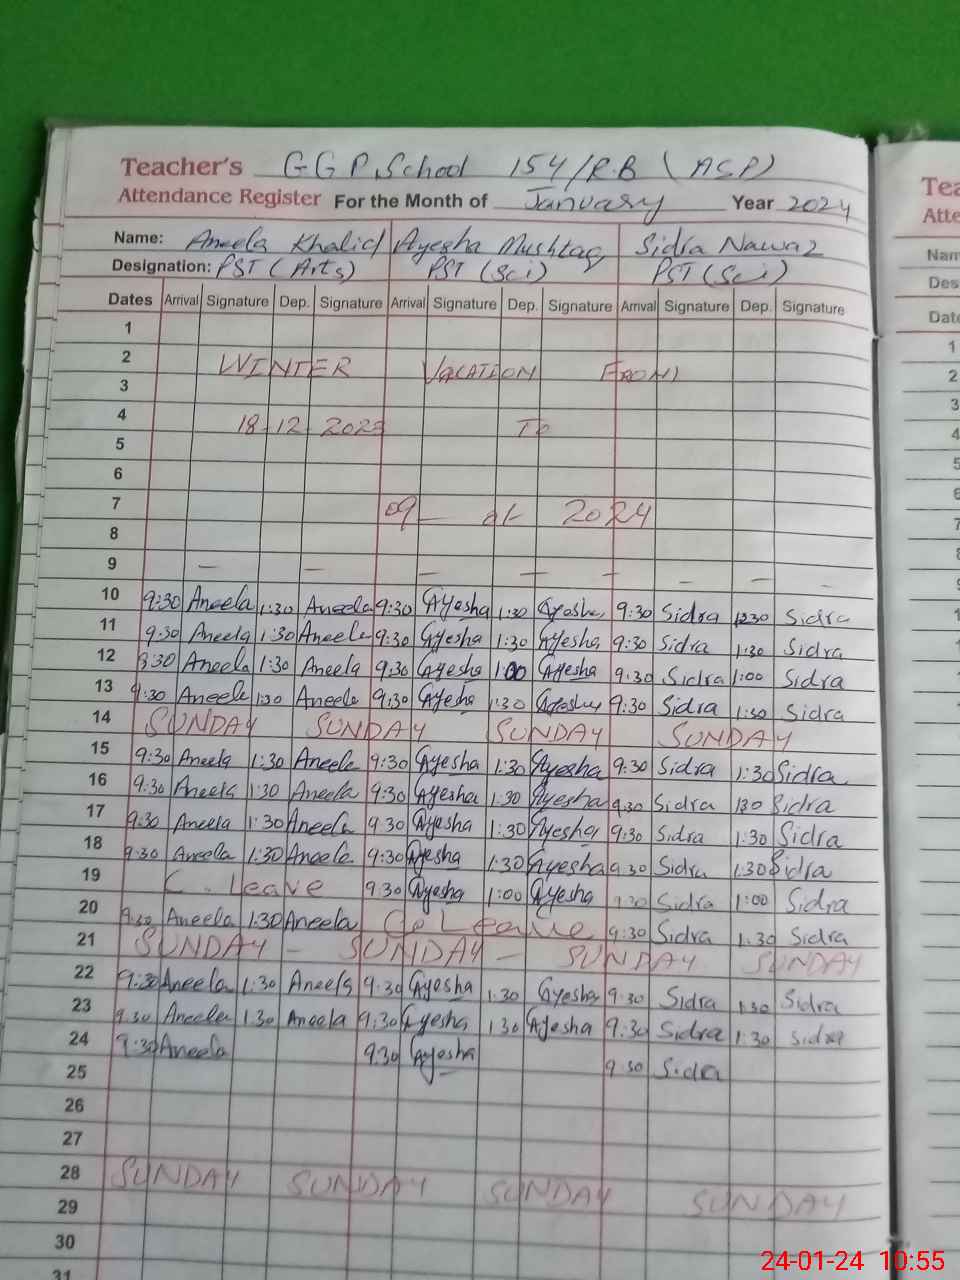 Teacher's G G P. School 154/R.B (ASP)
Attendance Register For the Month of January Year 2024
Name: Aneela Khalid Ayesha Mushtaq Sidra Nawaz
Designation: PST (Arts) PST (Sci) PST (Sci)
Dates Arrival Signature Dep. Signature Arrival Signature Dep. Signature Arrival Signature Dep. Signature
1
2 WINTER VACATION FROM
3
4 18-12-2023 To
5
6
7 09 - 01- 2024
8
9 – – – – – – – –
10 9:30 Aneela 1:30 Aneela 9:30 Ayesha 1:30 Ayesha 9:30 Sidra Sidra
11 9:30 Aneela 1:30 Aneela 9:30 Ayesha 1:30 Ayesha 9:30 Sidra 1:30 Sidra
12 9:30 Aneela 1:30 Aneela 9:30 Ayesha 1:00 Ayesha 9:30 Sidra 1:00 Sidra
13 9:30 Aneela 1:30 Aneela 9:30 Ayesha 1:30 Ayesha 9:30 Sidra 1:30 Sidra
14 SUNDAY SUNDAY SUNDAY SUNDAY
15 9:30 Aneela 1:30 Aneela 9:30 Ayesha 1:30 Ayesha 9:30 Sidra 1:30 Sidra
16 9:30 Aneela 1:30 Aneela 9:30 Ayesha 1:30 Ayesha 9:30 Sidra 130 Sidra
17 9:30 Aneela 1:30 Aneela 9:30 Ayesha 1:30 Ayesha 9:30 Sidra 1:30 Sidra
18 9:30 Aneela 1:30 Aneela 9:30 Ayesha 1:30 Ayesha 9:30 Sidra 1:30 Sidra
19 C. Leave 9:30 Ayesha 1:00 Ayesha 9:30 Sidra 1:00 Sidra
20 9:30 Aneela 1:30 Aneela Leave 9:30 Sidra 1:30 Sidra
21 SUNDAY – SUNDAY – SUNDAY SUNDAY
22 9:30 Aneela 1:30 Aneela 9:30 Ayesha 1:30 Ayesha 9:30 Sidra 1:30 Sidra
23 9:30 Aneela 1:30 Aneela 9:30 Ayesha 1:30 Ayesha 9:30 Sidra 1:30 Sidra
24 9:30 Aneela 9:30 Ayesha 9:30 Sidra
25
26
27
28 SUNDAY SUNDAY SUNDAY SUNDAY
29
30
31
Atte
Nam
Des
Date
1
2
3
4
5
6
7
8
9
24-01-24 10:55